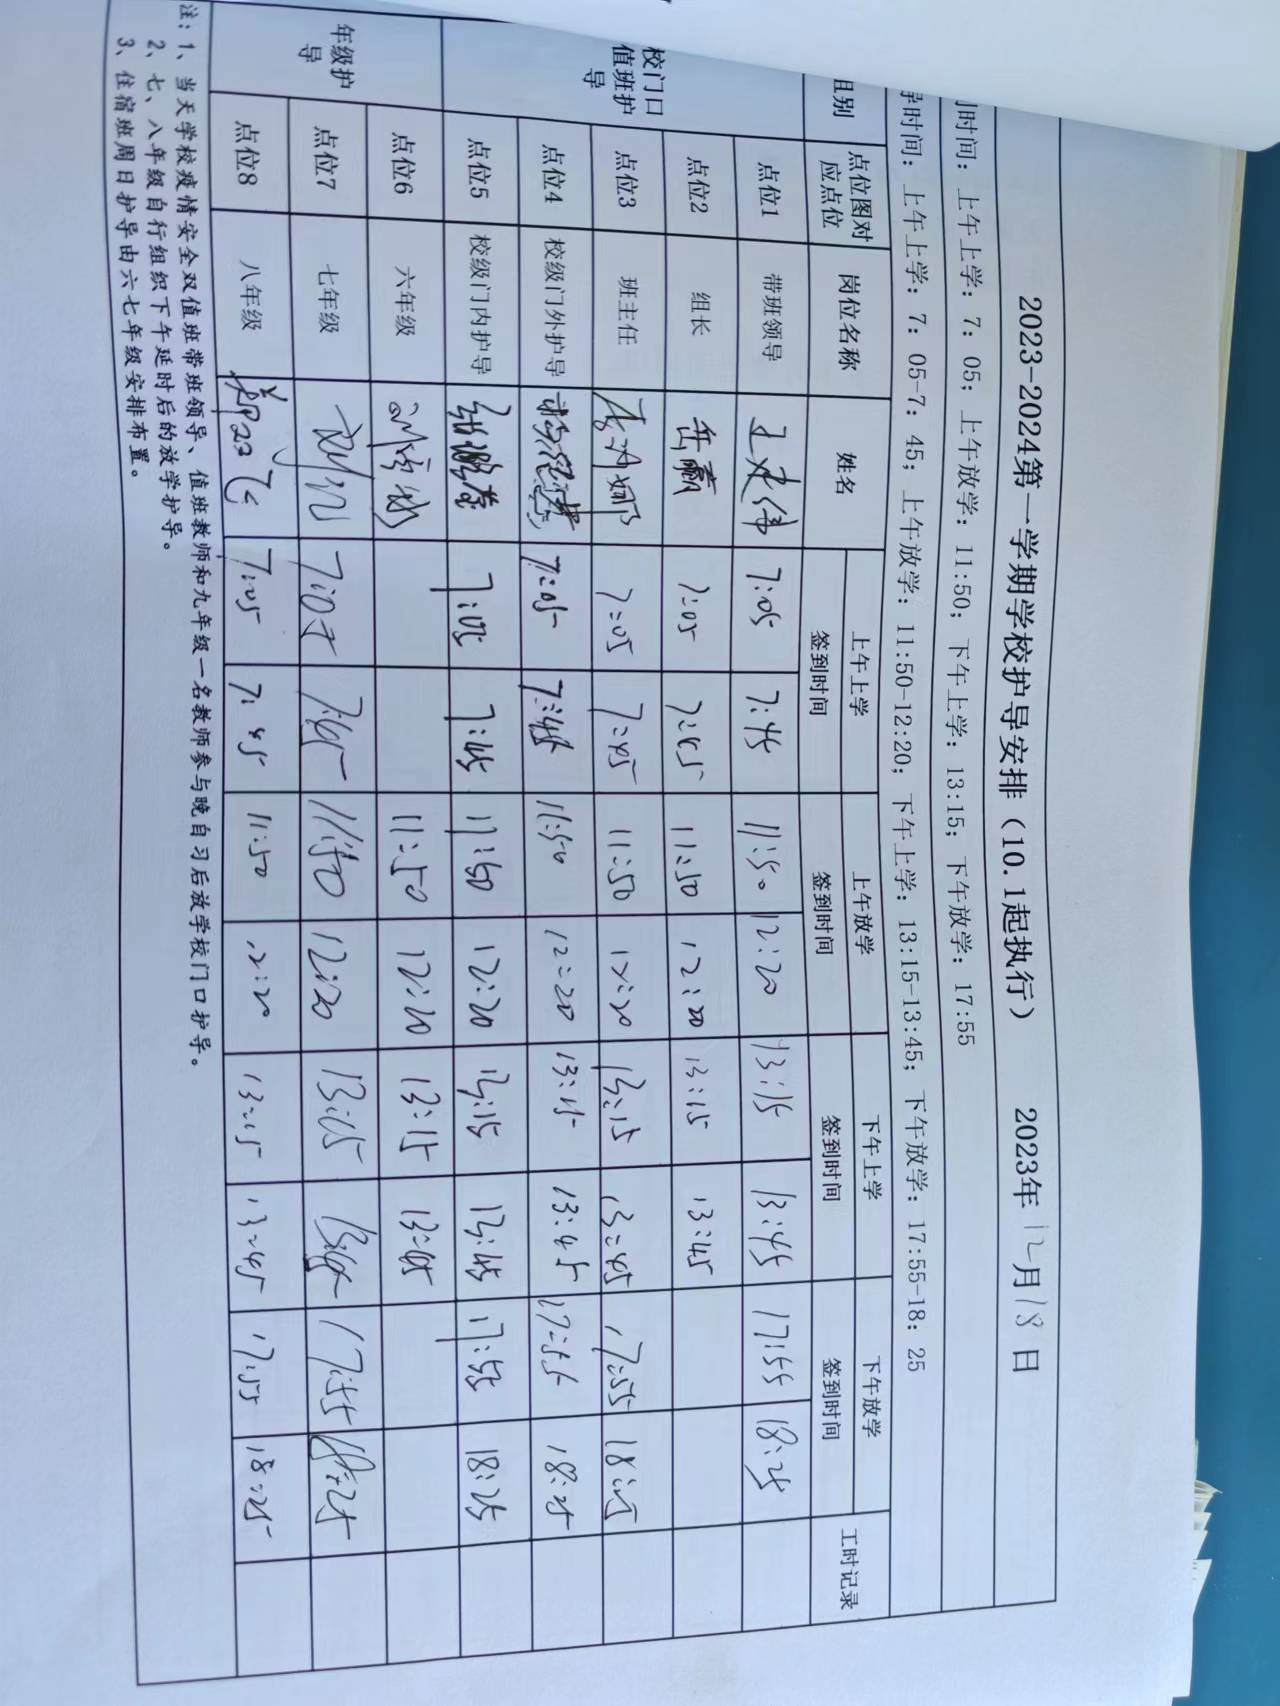 2023-2024第一学期学校护导安排（10.1起执行） 2023年12月18日
时间：上午上学：7：05；上午放学：11:50；下午上学：13:15；下午放学：17:55
导时间：上午上学：7：05-7：45；上午放学：11:50-12:20；下午上学：13:15-13:45；下午放学：17:55-18：25
组别 点位图对应点位 岗位名称 姓名 上午上学签到时间 上午放学签到时间 下午上学签到时间 下午放学签到时间 工时记录
校门口值班护导 点位1 带班领导 7:05 7:45 11:50 12:20 13:15 13:45 17:55 18:25
点位2 组长 岳赢 7:05 7:45 11:50 12:20 13:15 13:45
点位3 班主任 7:05 7:45 11:50 12:20 13:15 13:45 17:55 18:25
点位4 校级门外护导 7:05 7:45 11:50 12:20 13:15 13:45 17:55 18:25
点位5 校级门内护导 7:05 7:45 11:50 12:20 13:15 13:45 17:55 18:25
年级护导 点位6 六年级 11:50 12:20 13:15 13:45
点位7 七年级 7:05 7:45 11:50 12:20 13:15 13:45 17:55 18:25
点位8 八年级 7:05 7:45 11:50 12:20 13:15 13:45 17:55 18:25
注：1、当天学校疫情安全双值班带班领导、值班教师和九年级一名教师参与晚自习后放学校门口护导。
2、七、八年级自行组织下午延时后的放学护导。
3、住宿班周日护导由六七年级安排布置。